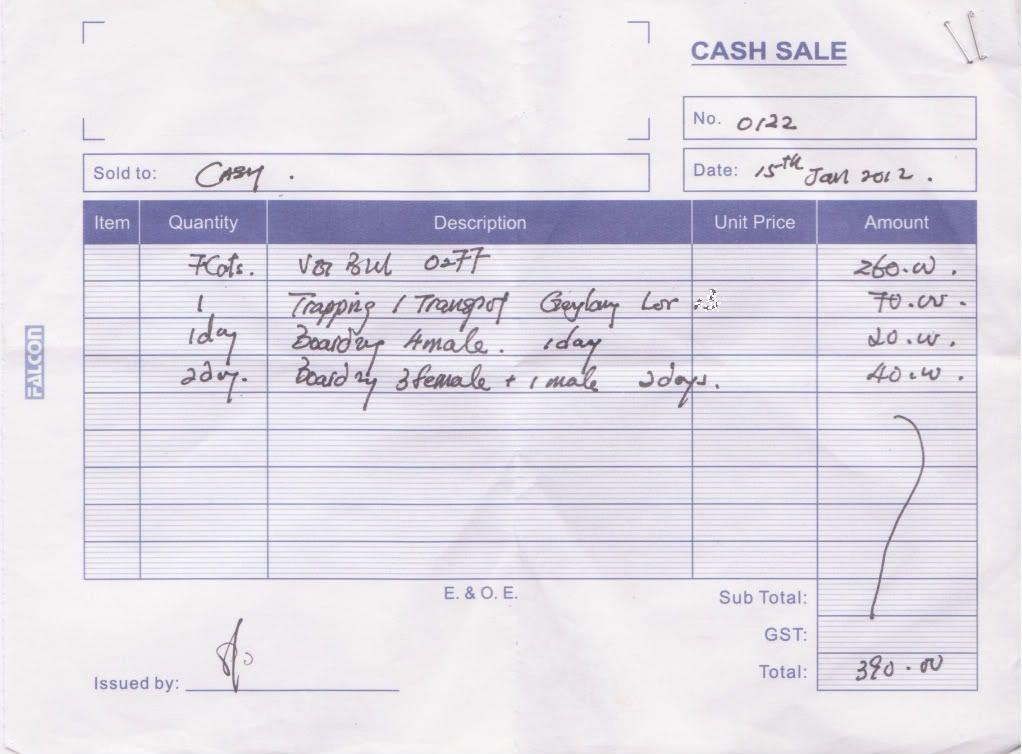 CASH SALE
No. 0122
Sold to: CASY .
Date: 15th Jan 2012 .
Item Quantity Description Unit Price Amount
7Cats. Vet Bill 0277 260.00 .
1 Trapping / Transport Geylang Lor 70.00 .
1day Boarding 4male. 1day 20.00 .
2day. Boarding 3female + 1 male 2days. 40.00 .
FALCON
E. & O. E.
Sub Total:
GST:
Total: 390.00
Issued by: